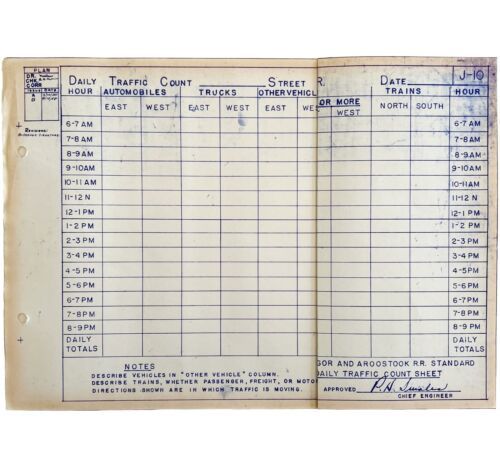 PLAN
DR.
CHK.
CORR
ISSUE DATE
A
D
DAILY TRAFFIC COUNT STREET R. DATE J-10
HOUR AUTOMOBILES TRUCKS OTHER VEHICL TRAINS HOUR
OR MORE
EAST WEST EAST WEST EAST WEST WEST NORTH SOUTH
6-7 AM 6-7 AM
7-8 AM 7-8 AM
8-9 AM 8-9 AM
9-10 AM 9-10 AM
10-11 AM 10-11 AM
11-12 N 11-12 N
12-1 PM 12-1 PM
1-2 PM 1-2 PM
2-3 PM 2-3 PM
3-4 PM 3-4 PM
4-5 PM 4-5 PM
5-6 PM 5-6 PM
6-7 PM 6-7 PM
7-8 PM 7-8 PM
8-9 PM 8-9 PM
DAILY TOTALS DAILY TOTALS
NOTES
DESCRIBE VEHICLES IN "OTHER VEHICLE" COLUMN.
DESCRIBE TRAINS, WHETHER PASSENGER, FREIGHT, OR MOTO
DIRECTIONS SHOWN ARE IN WHICH TRAFFIC IS MOVING.
GOR AND AROOSTOOK R.R. STANDARD
DAILY TRAFFIC COUNT SHEET
APPROVED
CHIEF ENGINEER